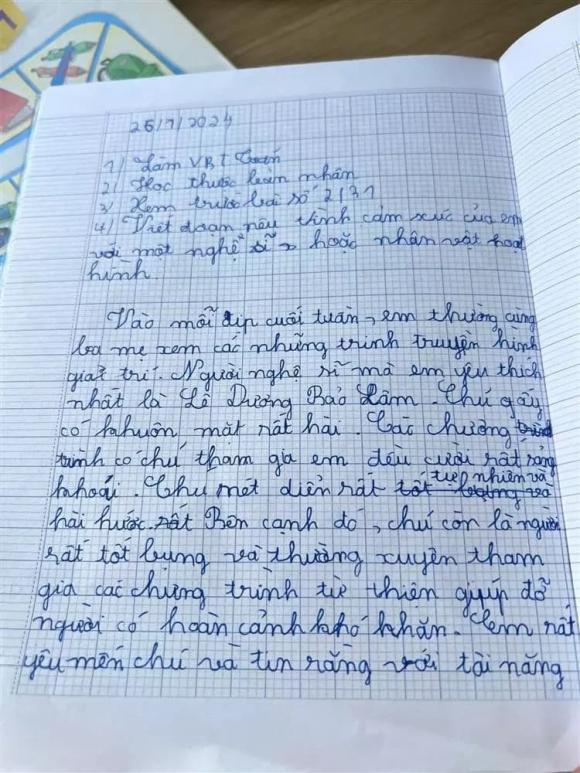 26/9/2024
1) Làm VBT Toán
2) Học thuộc lòng nhân
3) Xem trước bài số 2131
4) Viết đoạn nêu tình cảm xúc của em
với một nghệ sĩ hoặc nhân vật hoạt
hình.
Vào mỗi dịp cuối tuần, em thường cùng
ba mẹ xem các những trình truyện hình
giải trí. Người nghệ sĩ mà em yêu thích
nhất là Lê Dương Bảo Lâm. Chú gấy
có khuôn mặt rất hài. Các chương trình
trình có chú tham gia em đều cười rất sảng
khoái. Chú diễn rất tự nhiên và
hài hước. rất Bên cạnh đó, chú còn là người
rất tốt bụng và thường xuyên tham
gia các chưng trình từ thiện giyúp đỡ
người có hoàn cảnh khó khăn. Em rất
yêu mến chú và tin rằng với tài năng